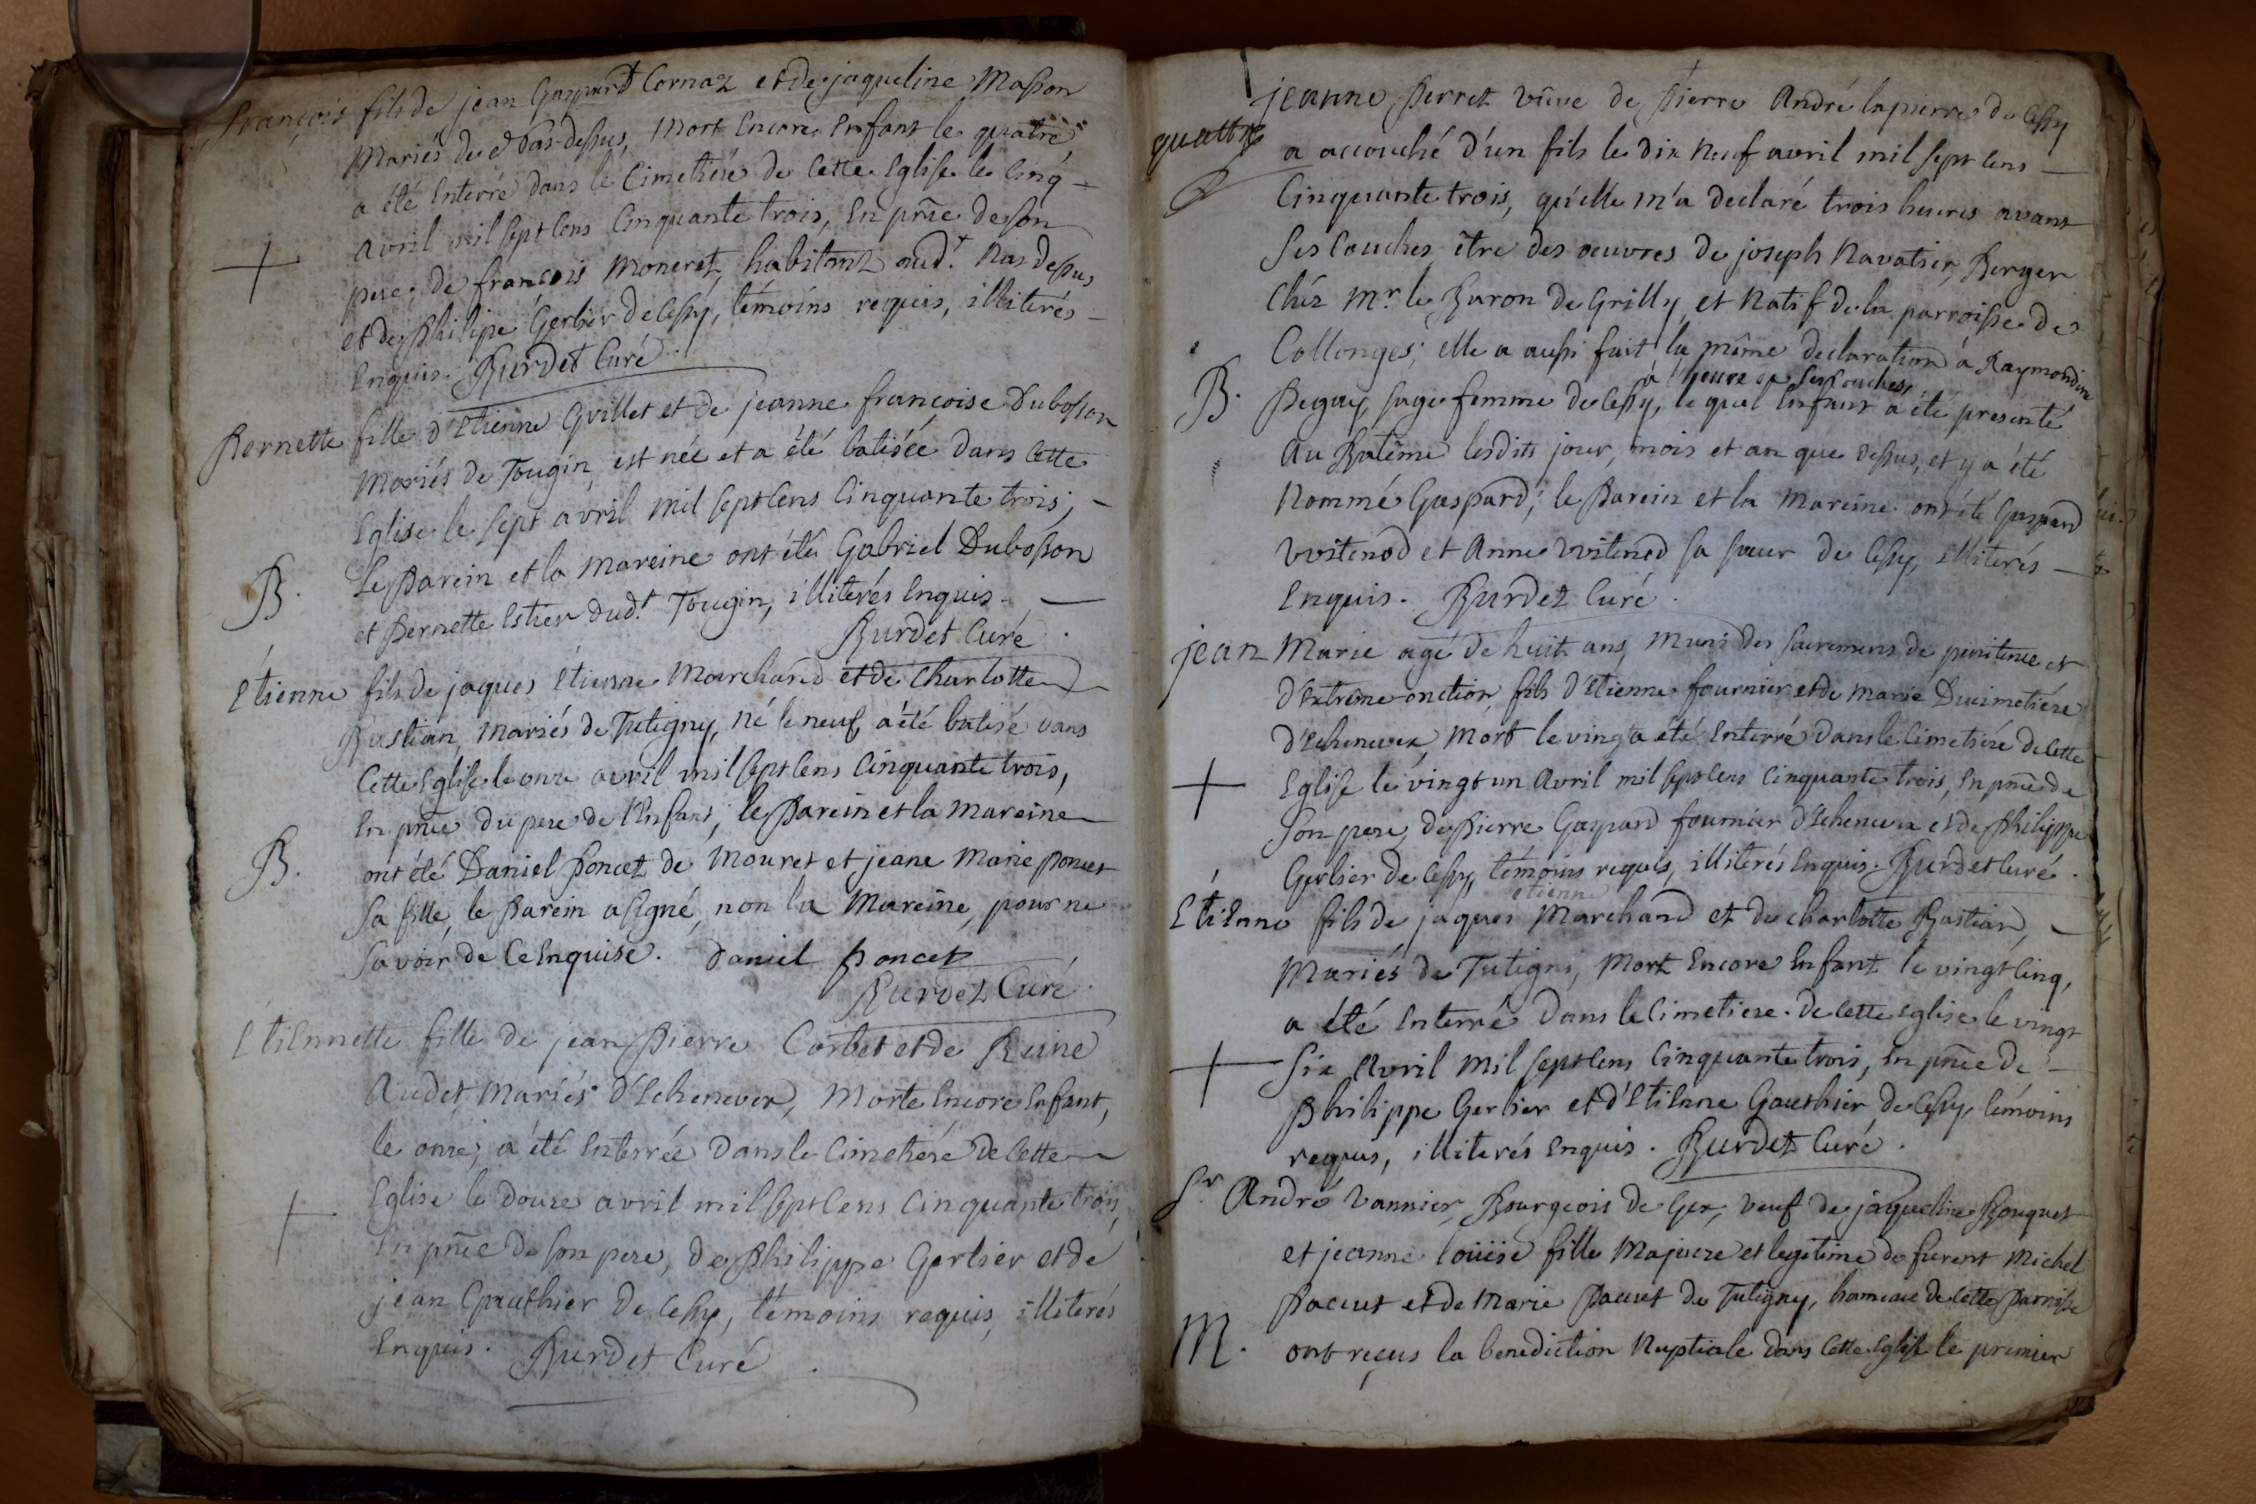 françois fils de jean Gaspard Cornaz et de jaqueline Masson
Mariés de dessus, Mort Encore Enfant le quatre
a été Enterré dans le Cimetiére de Cette Eglise le Cinq
avril mil sept Cens Cinquante trois, En pnce de son
pere, de françois Moneret, habitant aud.t Nas dessus
et de Philipe Gerlier de Cessy, témoins requis, illiterés
Enquis. Burdet Curé
Bernette fille d'Etienne Gvillet et de jeanne françoise Dubosson
Mariés de Tougin, est née et a été batisée dans Cette
Eglise le sept avril mil sept Cens Cinquante trois;
B. Le Parein et la Mareine ont été Gabriel Dubosson
et Bernette Estier dud.t Tougin, illiterés Enquis.
Burdet Curé
Etienne fils de jaques Etienne Marchand et de Charlotte
Bastian, Mariés de Tutigny, né le neuf, a été batisé dans
Cette Eglise le onze avril mil sept Cens Cinquante trois,
En pnce du pere de l'Enfant; le Parein et la Mareine
B. ont été Daniel Poncet de Mouret et jeane Marie Poncet
Sa fille, le Parein a signé, non la Mareine, pour ne
savoir de Ce Enquise. Daniel Poncet
Burdet Curé
Etiennette fille de jean Pierre Corbet et de Reine
Audet Mariés d'Echenevex, Morte Encore Enfant,
le onze, a été Enterrée dans le Cimetiére de Cette
Eglise le douze avril mil sept Cens Cinquante trois,
En pnce de son pere, de Philippe Gerlier et de
jean Gauthier de Cessy, témoins requis, illiterés
Enquis. Burdet Curé
jeanne Perret vûve de Pierre André lapierre de Cessy
quattre a accouché d'un fils le dix Neuf avril mil sept Cens
Cinquante trois, qu'elle m'a declaré trois heures avant
Ses Couches être des oeuvres de joseph Navatier, Berger
Chéz Mr. le Baron de Grilly, et Natif de la parroisse de
Collonges; elle a aussi fait la même declaration à Raymondine
à l'heure de ses Couches,
B. Begay, sage femme de Cessy, le quel Enfant a été presenté
Au Batême lesdits jour, mois et an que dessus, et y a été
Nommé Gaspard; le Parein et la Mareine ont été Gaspard
Vvitenod et Anne Vvitenod sa sœur de Cessy, illiterés
Enquis. Burdet Curé.
jean Marie agé de huit ans, Muni des sacremens de penitence et
d'Extrême onction, fils d'Etienne fournier et de Marie Ducimetiére
d'Echenevex, Mort le ving a été Enterré dans le Cimetiére de Cette
Eglise le vingt un Avril mil sept Cens Cinquante trois, En pnce de
Son pere, de Pierre Gaspard fournier d'Echenevex et de Philippe
Gerlier de Cessy, témoins requis, illiterés Enquis. Burdet Curé.
etienn
Etienne fils de jaques Marchand et de Charlotte Bastian,
Mariés de Tutigni, Mort Encore Enfant le vingt Cinq,
a été Enterré dans le Cimetiere de Cette Eglise le vingt
Six Avril Mil sept Cens Cinquante trois, En pnce de
Philippe Gerlier et d'Etienne Gauthier de Cessy, témoins
requis, illiterés Enquis. Burdet Curé.
Sr André Vannier, Bourgeois de Gex, veuf de jaqueline Bouquet
et jeanne Loüise fille Majeure et legitime de furent Michel
Pacut et de Marie Pacut de Tutigny, hameau de Cette Parroisse
M. ont reçus la benediction Nuptiale dans Cette Eglise le premier